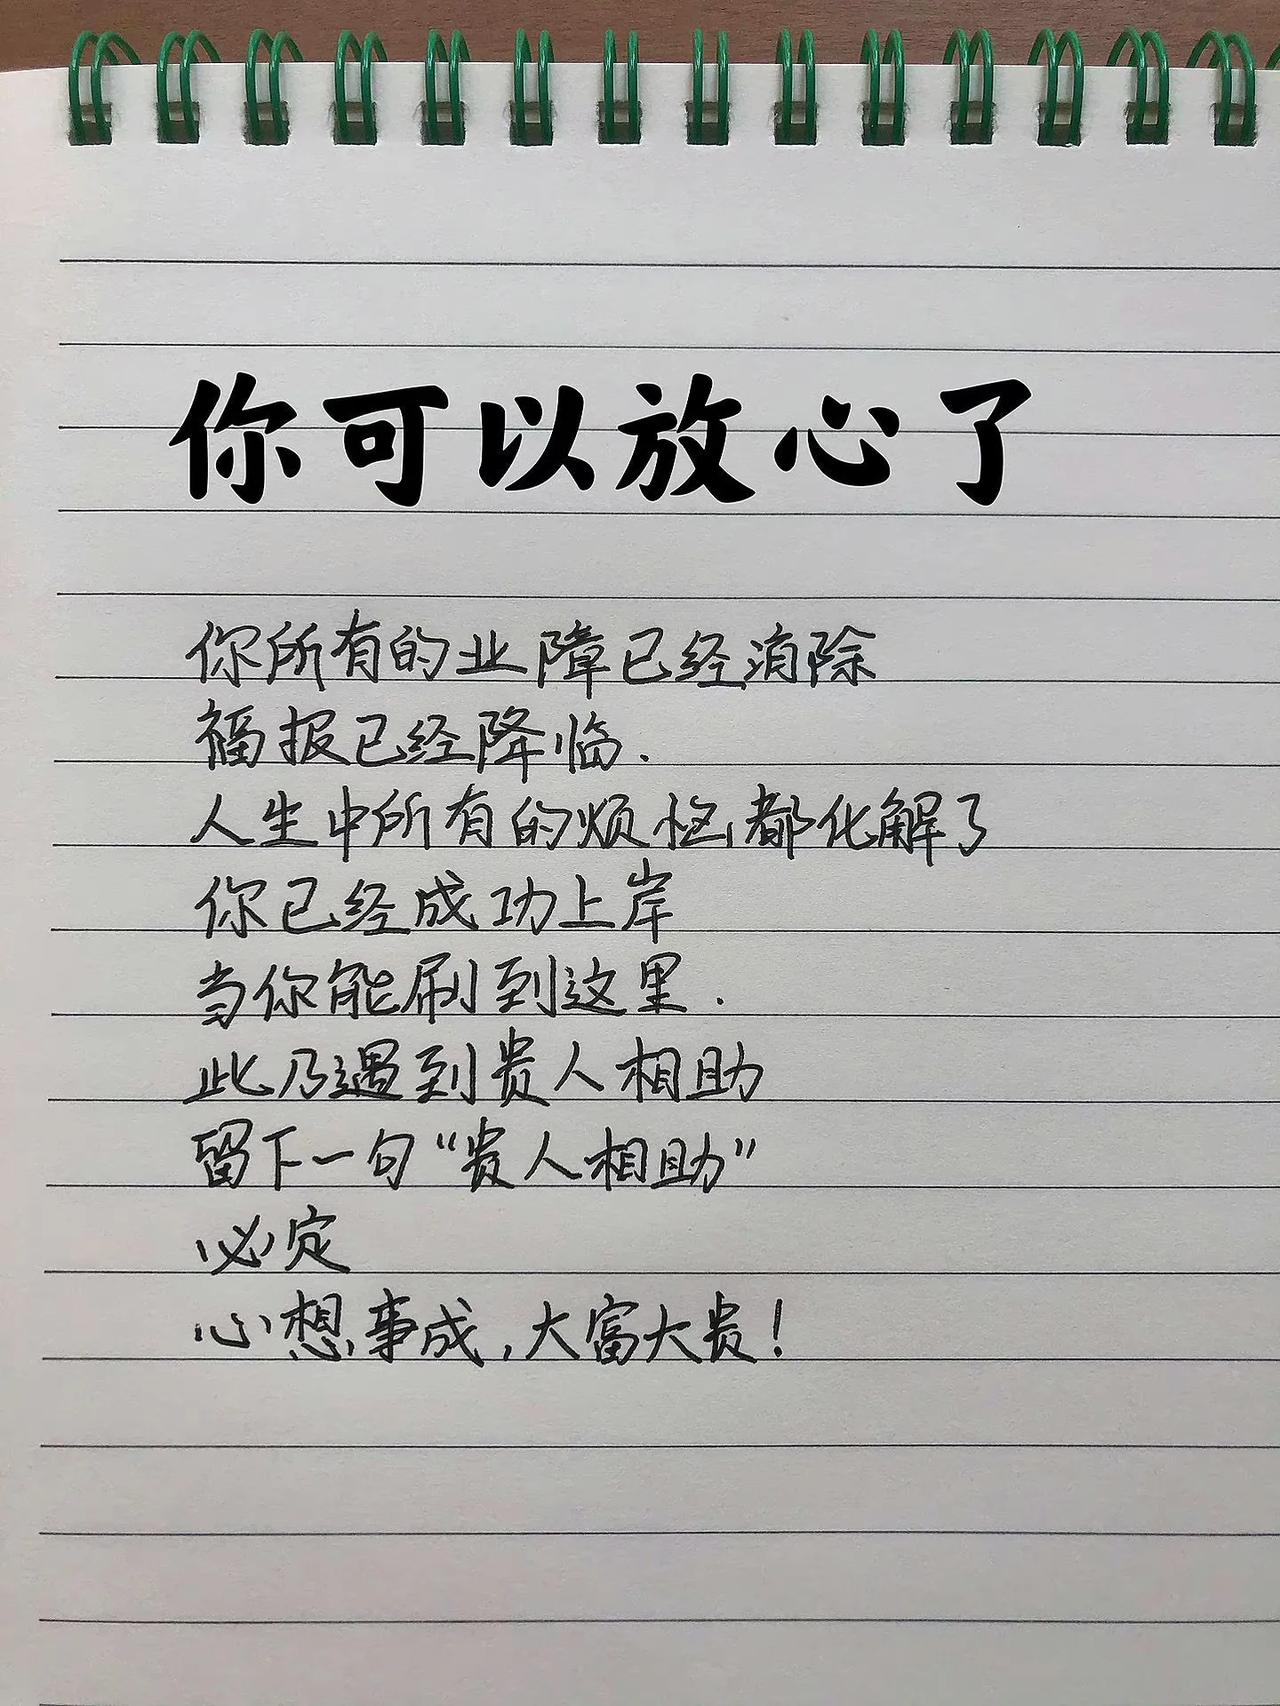 你可以放心了
你所有的业障已经消除
福报已经降临.
人生中所有的烦恼都化解了
你已经成功上岸
当你能刷到这里.
此乃遇到贵人相助
留下一句“贵人相助”
必定
心想事成,大富大贵!